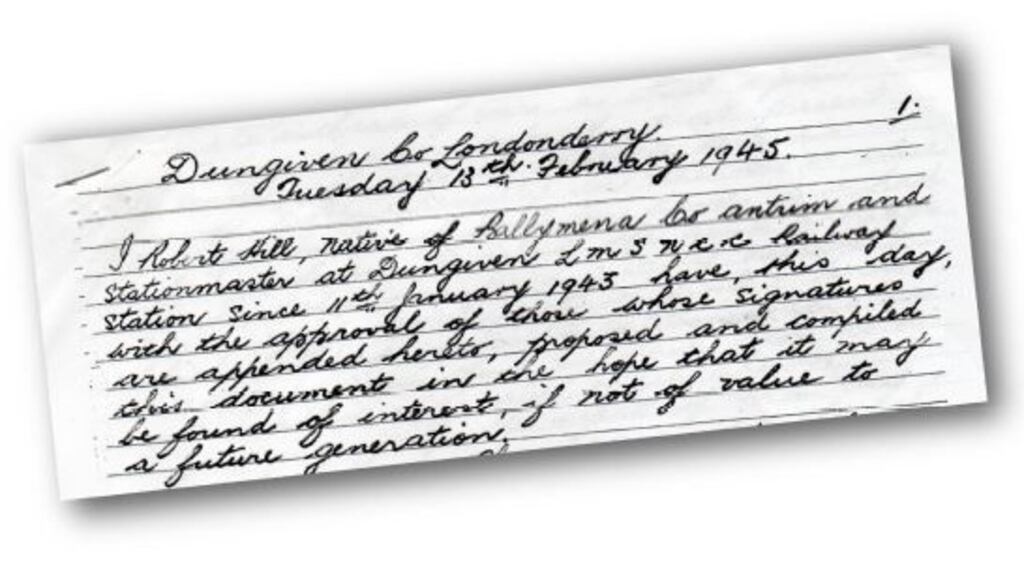 1.
Dungiven Co Londonderry.
Tuesday 13th. February 1945.
I Robert Hill, native of Ballymena Co antrim and
stationmaster at Dungiven L m S n c c Railway
station since 11th January 1943 have, this day,
with the approval of those whose signatures
are appended hereto, proposed and compiled
this document in the hope that it may
be found of interest, if not of value to
a future generation.